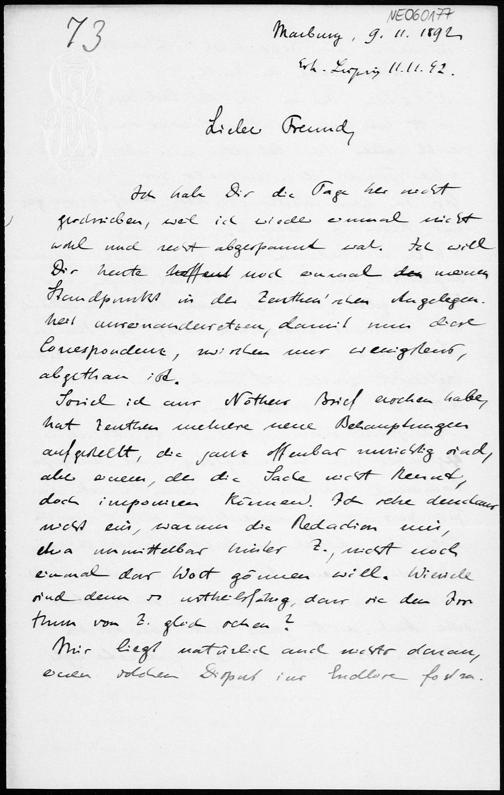 NEO60177
73
Marburg, 9. 11. 1892
Erh. Leipzig 11.11.92.
Lieber Freund,
Ich habe Dir die Tage her nicht
geschrieben, weil ich wieder einmal nicht
wohl und recht abgespannt war. Ich will
Dir heute hoffent noch einmal den meinen
Standpunkt in der Zeuthen'schen Angelegen-
heit auseinandersetzen, damit nun diese
Correspondenz, zwischen uns wenigstens,
abgethan ist.
Soviel ich aus Nöthers Brief ersehen habe,
hat Zeuthen mehrere neue Behauptungen
aufgestellt, die ganz offenbar unrichtig sind,
aber einem, der die Sache nicht kennt,
doch imponiren können. Ich sehe durchaus
nicht ein, warum die Redaction mir,
etwa unmittelbar hinter Z., nicht noch
einmal das Wort gönnen will. Wieviele
sind denn so urtheilsfähig, dass sie den Irr-
thum von Z. gleich sehen?
Mir liegt natürlich auch nichts daran,
einen solchen Disput ins Endlose